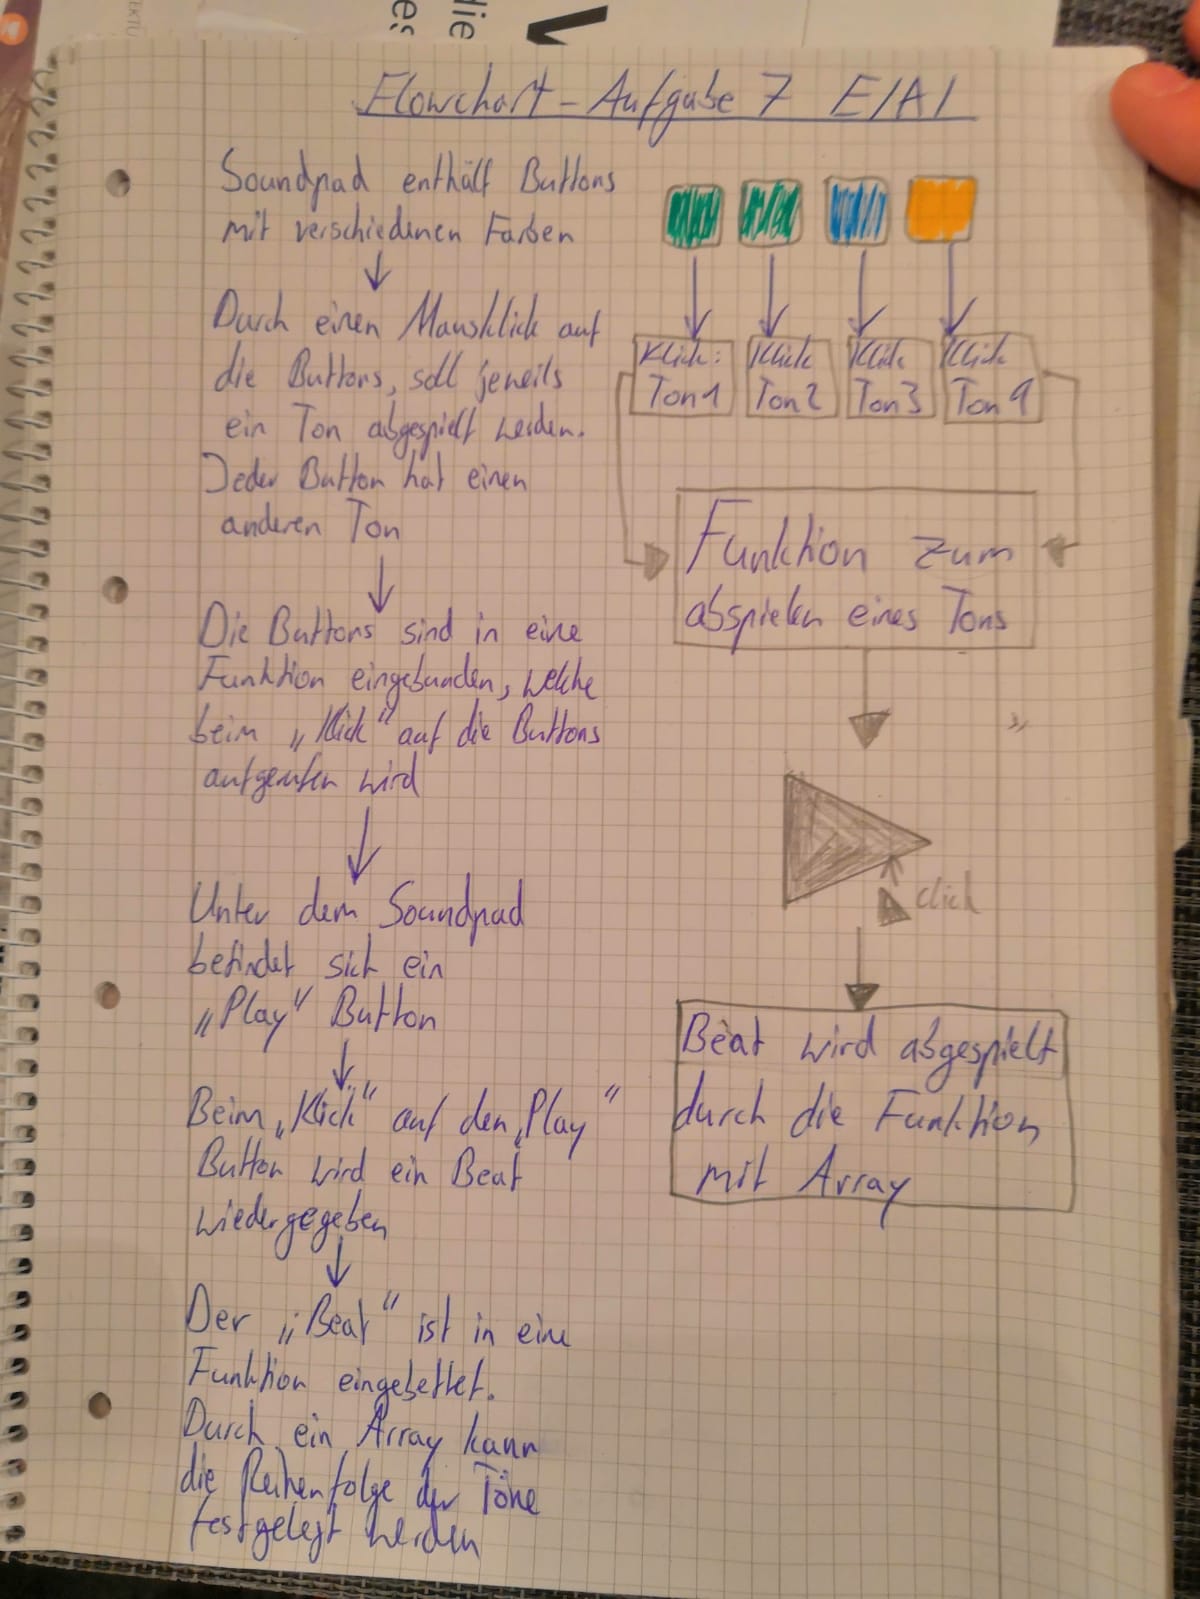 Flowchart - Aufgabe 7 EIA1
Soundpad enthält Buttons
mit verschiedenen Farben
Durch einen Mausklick auf
die Buttons, soll jeweils
ein Ton abgespielt werden.
Jeder Button hat einen
anderen Ton
Die Buttons sind in eine
Funktion eingebunden, welche
beim „Klick“ auf die Buttons
aufgerufen wird
Unter dem Soundpad
befindet sich ein
„Play“ Button
Beim „Klick“ auf den „Play“
Button wird ein Beat
wiedergegeben
Der „Beat“ ist in eine
Funktion eingebettet.
Durch ein Array kann
die Reihenfolge der Töne
festgelegt werden
Klick:
Ton 1
Klick
Ton 2
Klick
Ton 3
Klick
Ton 9
Funktion zum
abspielen eines Tons
click
Beat wird abgespielt
durch die Funktion
mit Array
die
es